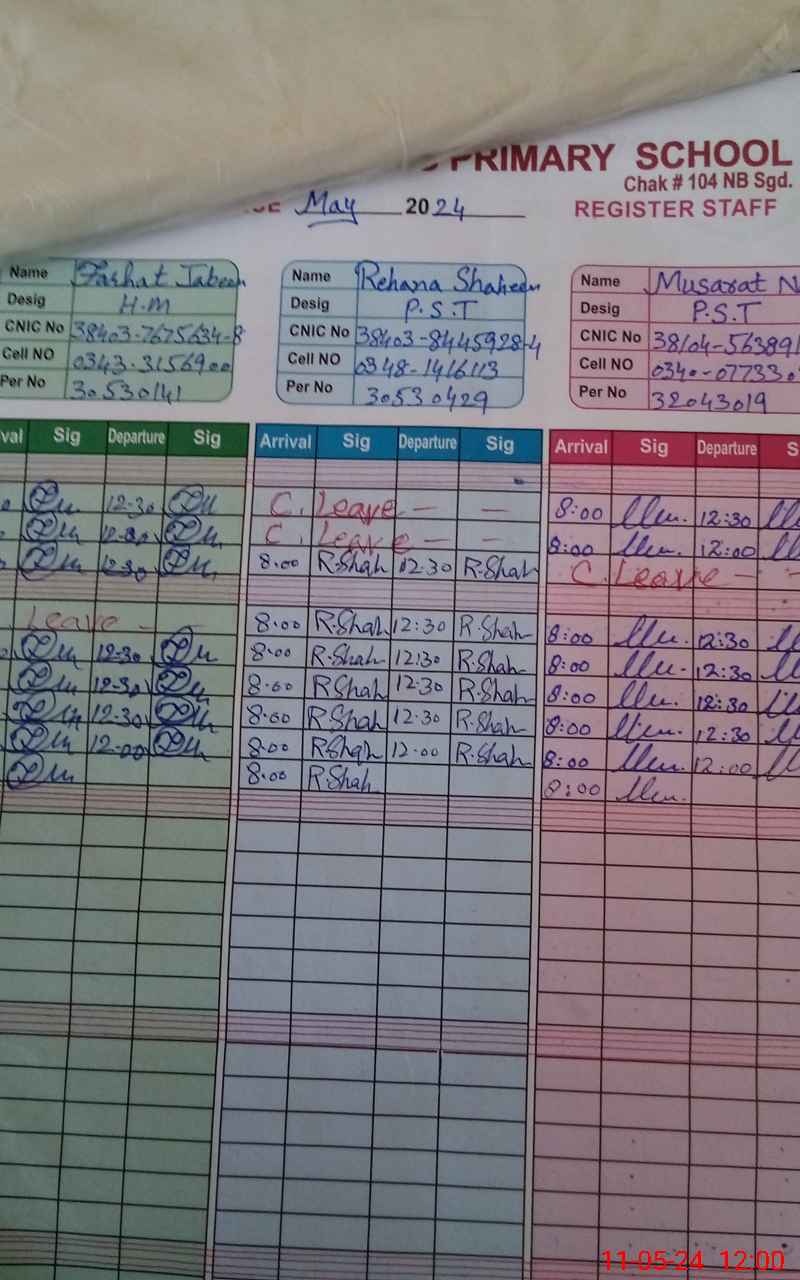 PRIMARY SCHOOL
Chak # 104 NB Sgd.
May 2024 REGISTER STAFF
Name Farhat Jabeen Name Rehana Shaheen Name Musarat N
Desig H.M Desig P.S.T Desig P.S.T
CNIC No 38403-7675634-8 CNIC No 38403-8445928-4 CNIC No 38104-56389
Cell NO 0343-3156900 Cell NO 0348-1416113 Cell NO 0340-07733
Per No 30530141 Per No 30530429 Per No 32043019
val Sig Departure Sig Arrival Sig Departure Sig Arrival Sig Departure S
12-30 C. Leave - - 8:00 12:30
C. Leave - - 8:00 12:00
12-30 8.00 R.Shah 12.30 R.Shah C. Leave - -
Leave - 8.00 R.Shah 12:30 R.Shah 8:00 12:30
12-30 8.00 R.Shah 12:30 R.Shah 8:00 12:30
12-30 8.00 R.Shah 12.30 R.Shah 8:00 12:30
12-30 8.00 R.Shah 12.30 R.Shah 8:00 12:30
12-00 8.00 R.Shah 12.00 R.Shah 8:00 12:00
8.00 R.Shah 8:00
11-05-24 12:00